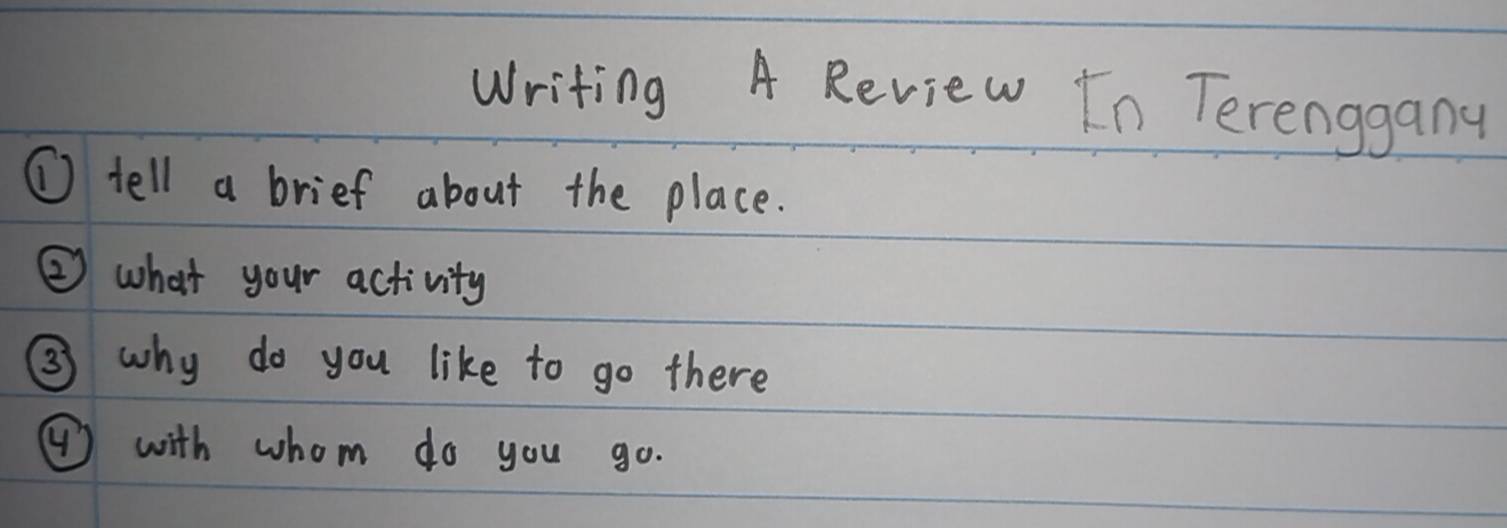 Writing A Review In Terengganu
① tell a brief about the place.
② what your activity
③ why do you like to go there
④ with whom do you go.